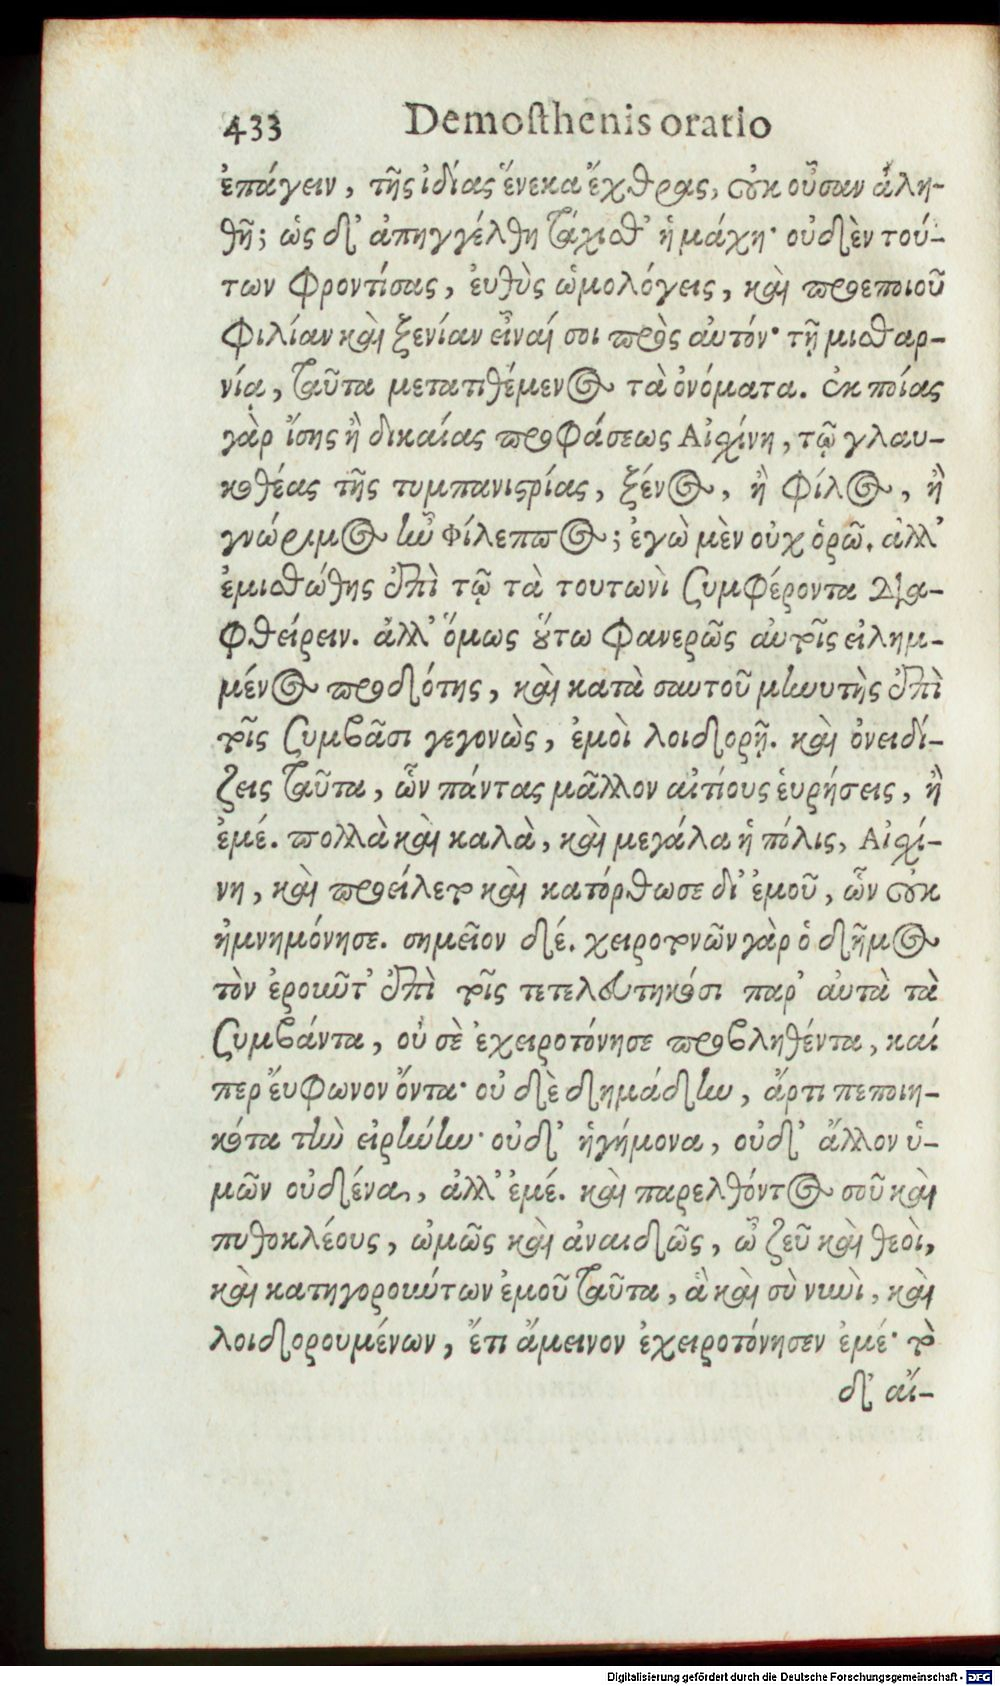 433 Demosthenis oratio
ἐπάγειν, τῆς ἰδίας ἕνεκα ἔχθρας, οὐκ οὖσαν ἀλη-
θῆ; ὡς δ’ ἀπηγγέλθη τάχισθ’ ἡ μάχη· οὐδὲν τού-
των φροντίσας, εὐθὺς ὡμολόγεις, καὶ προσεποιοῦ
φιλίαν καὶ ξενίαν εἶναί σοι πρὸς αὐτόν· τῇ μισθαρ-
νίᾳ, ταῦτα μετατιθέμενος τὰ ὀνόματα. ἐκ ποίας
γὰρ ἴσης ἢ δικαίας προφάσεως Αἰσχίνη, τῷ γλαυ-
κοθέας τῆς τυμπανιστρίας, ξένος, ἢ φίλος, ἢ
γνώριμος ἦν φίλιππος; ἐγὼ μὲν οὐχ ὁρῶ. ἀλλ’
ἐμισθώθης ἐπὶ τῷ τὰ τουτωνὶ συμφέροντα δια-
φθείρειν. ἀλλ’ ὅμως οὕτω φανερῶς αὐτοῖς εἰλημ-
μένος προδότης, καὶ κατὰ σαυτοῦ μηνυτὴς ἐπὶ
τοῖς συμβᾶσι γεγονὼς, ἐμοὶ λοιδορῇ. καὶ ὀνειδί-
ζεις ταῦτα, ὧν πάντας μᾶλλον αἰτίους εὑρήσεις, ἢ
ἐμέ. πολλὰ καὶ καλὰ, καὶ μεγάλα ἡ πόλις, Αἰσχί-
νη, καὶ προείλετο καὶ κατόρθωσε δι’ ἐμοῦ, ὧν οὐκ
ἠμνημόνησε. σημεῖον δέ. χειροτονῶν γὰρ ὁ δῆμος
τὸν ἐροῦντ’ ἐπὶ τοῖς τετελευτηκόσι παρ’ αὐτὰ τὰ
συμβάντα, οὐ σὲ ἐχειροτόνησε προβληθέντα, καί
περ εὔφωνον ὄντα· οὐ δὲ δημάδην, ἄρτι πεποιη-
κότα τὴν εἰρήνην· οὐδ’ ἡγήμονα, οὐδ’ ἄλλον ὑ-
μῶν οὐδένα, ἀλλ’ ἐμέ. καὶ παρελθόντος σοῦ καὶ
πυθοκλέους, ὠμῶς καὶ ἀναιδῶς, ὦ ζεῦ καὶ θεοὶ,
καὶ κατηγορούντων ἐμοῦ ταῦτα, ἃ καὶ σὺ νυνὶ, καὶ
λοιδορουμένων, ἔτι ἄμεινον ἐχειροτόνησεν ἐμέ· τὸ
δ’ αἴ-
Digitalisierung gefördert durch die Deutsche Forschungsgemeinschaft - DFG